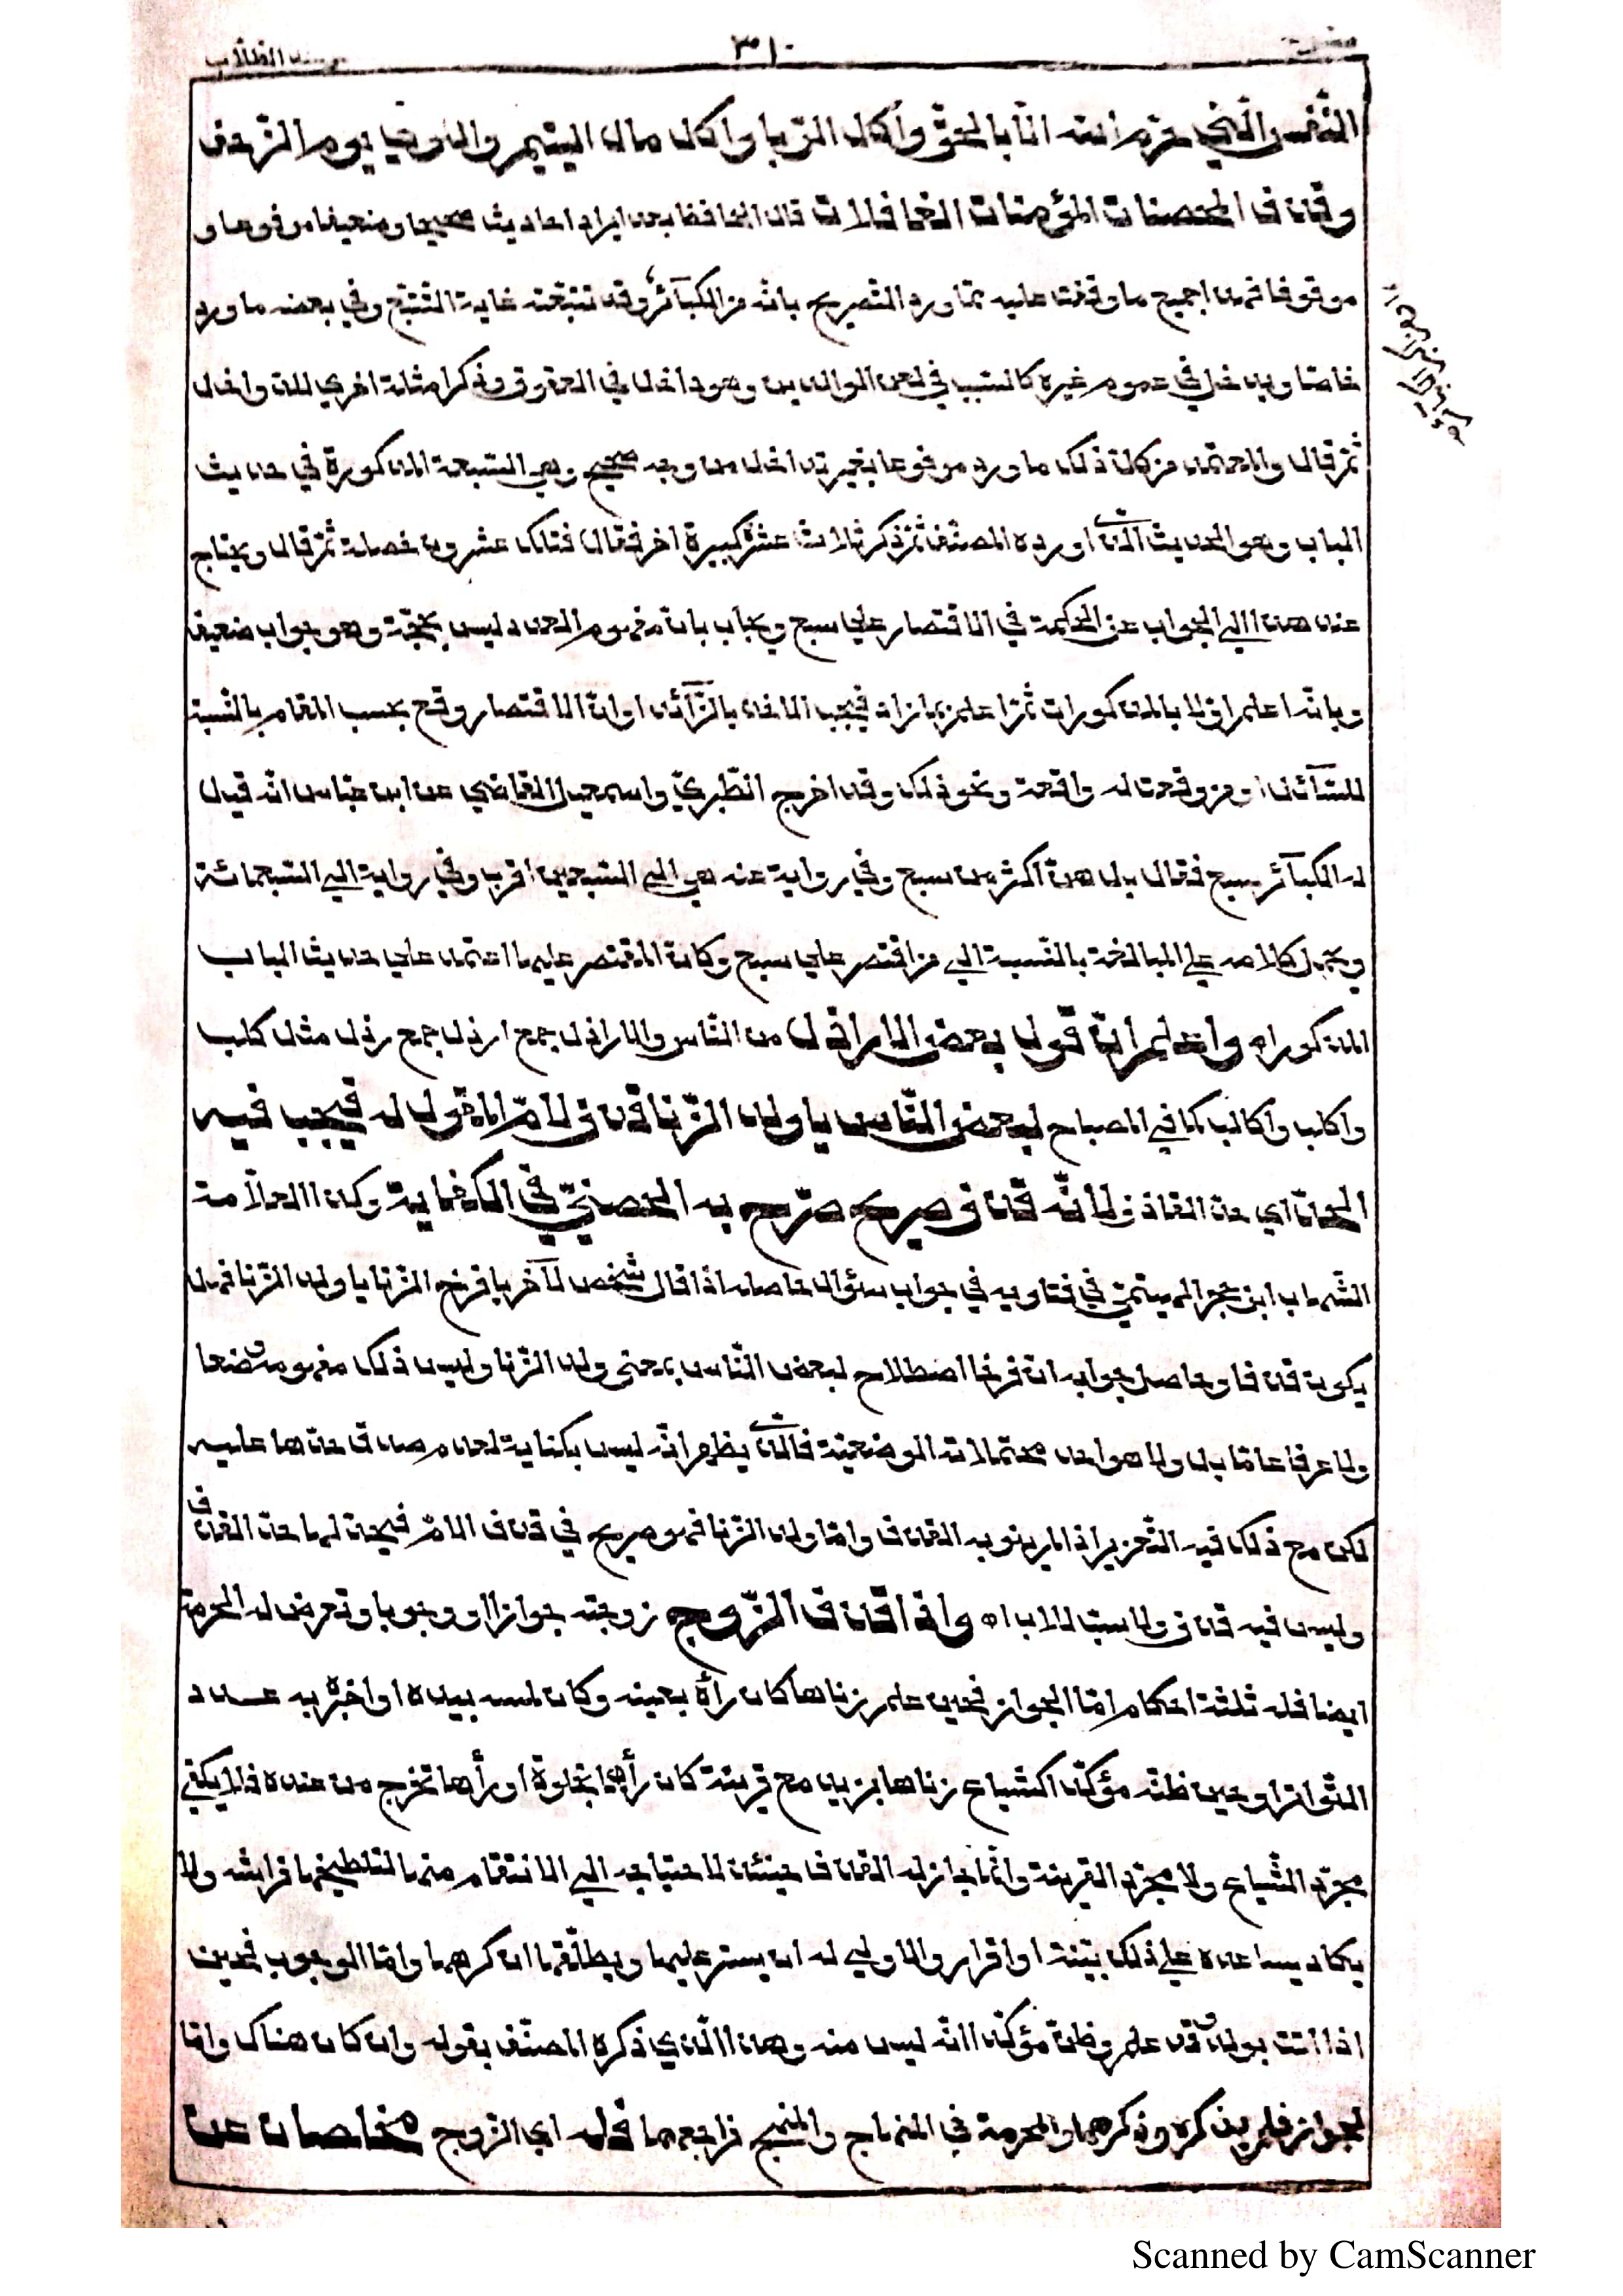 ٣١٠
النّفس الّتي حرّم الله الّا بالحقّ وأكل الرّبا وأكل مال اليتيم والتّولّي يوم الزّحف
وقذف المحصنات المؤمنات الغافلات قال الحافظ بعد ايراد احاديث صحيحها وضعيفها مرفوعها و
موقوفها فهذا جميع ما وقفت عليه ممّا ورد التّصريح بانّه من الكبآئر وقد تتبّعته غاية التّتبّع وفي بعضه ما ورد
خاصّا ويدخل في عموم غيره كالتسبب في لعن الوالدين وهو داخل في العقوق وذكر امثلة اخري للتداخل
ثمّ قال والمعتمد من كلّ ذلك ما ورد مرفوعا بغير تداخل من وجه صحيح وهي السّبعة المذكورة في حديث
الباب وهو الحديث الّذي اورده المصنّف ثمّ ذكر ثلاث عشرة كبيرة اخر فقال فتلك عشرون خصلة ثمّ قال ويحتاج
عند هذا الي الجواب عن الحكمة في الاقتصار علي سبع ويجاب بانّ مفهوم العدد ليس بحجّة وهو جواب ضعيف
وبانّه اعلم اوّلا بالمذكورات ثمّ اعلم بما زاد فيجب الاخذ بالزّآئد او انّ الاقتصار وقع بحسب المقام بالنّسبة
للسّآئل او من وقعت له واقعة ونحو ذلك وقد اخرج الطّبريّ واسمعيل القاضي عن ابن عبّاس انّه قيل
له الكبآئر سبع فقال بل هنّ اكثر من سبع وسبع وفي رواية عنه هي الي السّبعين اقرب وفي رواية الي السّبعمائة
ويحمل كلامه علي المبالغة بالنّسبة الي من اقتصر علي سبع وكانّ المقتصر عليها اعتمد علي حديث الباب
المذكور اه واعلم انّ قول بعض الاراذل من النّاس والاراذل جمع ارذل جمع رذل مثل كلب
واكلب واكالب كما في المصباح لبعض النّاس يا ولد الزّنا قذف لامّ المقول له فيجب فيه
الحدّ اي حدّ القذف لانّه قذف صريح صرّح به الحصنيّ في الكفاية وكذا العلّامة
الشّهاب ابن حجر الهيتميّ في فتاويه في جواب سؤال حاصله اذا قال شخص لآخر يا فرخ الزّنا يا ولد الزّنا فهل
يكون قذفا وحاصل جوابه انّ فرخا اصطلاح لبعض النّاس بمعنى ولد الزّنا وليس ذلك مفهومه وضعا
ولا عرفا عامّا بل ولا هو احد محتملاته الوضعيّة فالّذي يظهر انّه ليس بكناية لعدم صدق حدّها عليه
لكن مع ذلك فيه التّعزير اذا لم ينو به القذف وامّا ولد الزّنا فهو صريح في قذف الامّ فيحدّ لها حدّ القذف
وليس فيه قذف ولا سبّ للاب اه واذا قذف الزّوج زوجته جوازا او وجوبا وتعرض له الحرمة
ايضا فله ثلثة احكام امّا الجواز فحين علم زناها كان رأه بعينه وكان لمسه بيده او اخبره به عدد
التّواتر او حين ظنّه مؤكّدا كشياع زناها بزيد مع قرينة كان رأهما بخلوة او رأها تخرج من عنده فلا يكفي
مجرّد الشّياع ولا مجرّد القرينة وانّما جاز له القذف حينئذ لاحتياجه الي الانتقام منها لتلطيخها فراشه ولا
يكاد يساعده علي ذلك بيّنة او اقرار والاولي له ان يستر عليها ويطلّقها ان كرهها وامّا الوجوب فحين
اذا اتت بولد قد علم وظنّ مؤكّدا انّه ليس منه وهذا الّذي ذكره المصنّف بقوله وان كان هناك وامّا
لجواز فلم يذكره وذكرهما والحرمة في المنهاج والمنهج فراجعهما فله اي الزّوج مخلصان عن
Scanned by CamScanner